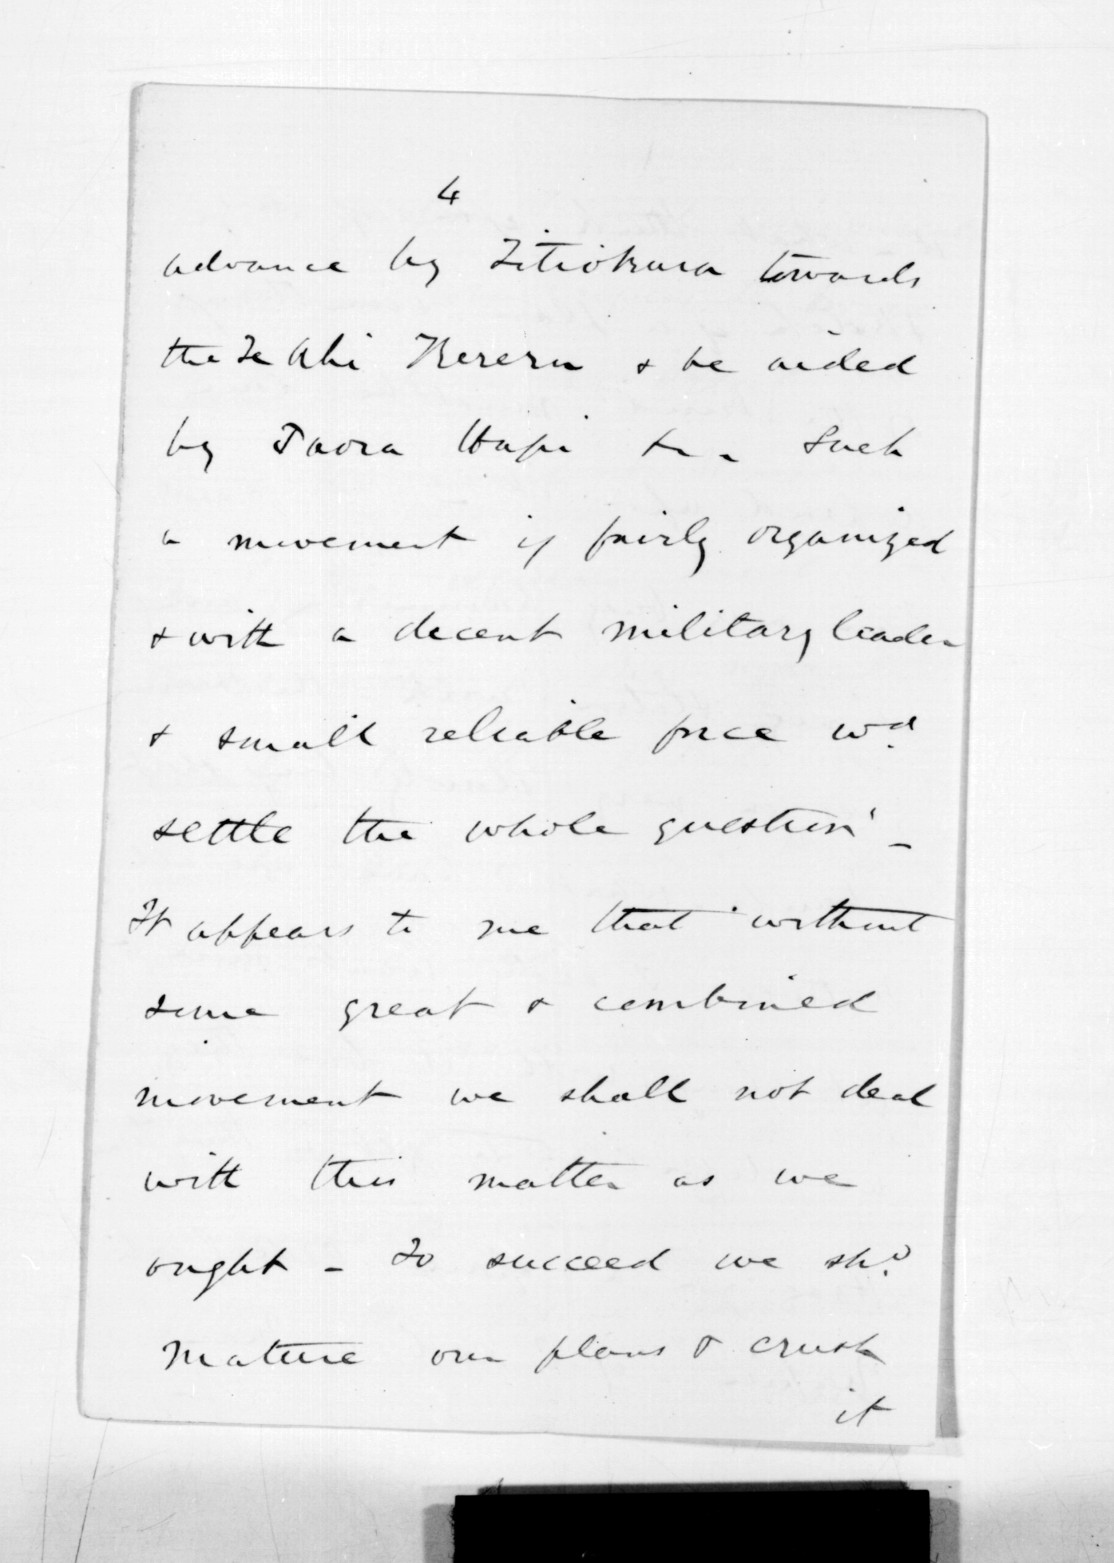 4
advance by Titiokura towards
the Te Ahi Kereru & be aided
by Paora Hapi &c - Such
a movement if fairly organized
& with a decent military leader
& small reliable force wd.
settle the whole question -
It appears to me that without
some great & combined
movement we shall not deal
with this matter as we
ought - To succeed we shd.
mature our plans & crush
it